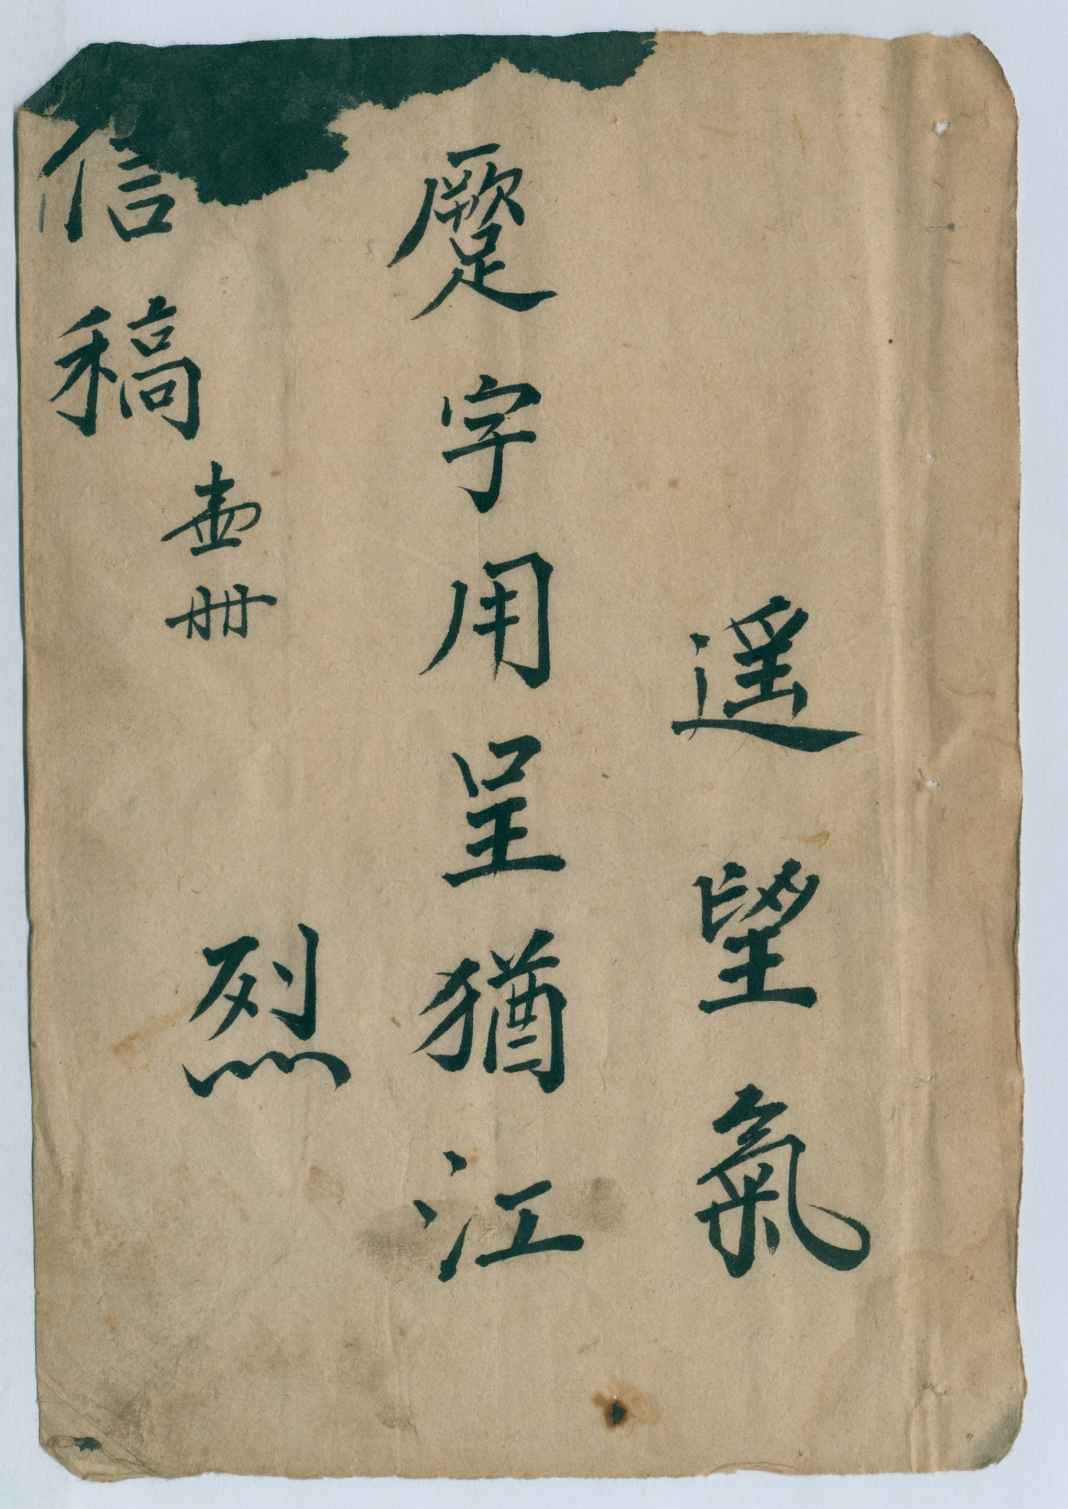 遥望氣
蹷字用呈猶江
信稿
壹冊
烈